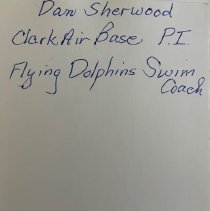 Dan Sherwood
Clark Air Base P.I.
Flying Dolphins Swim
Coach